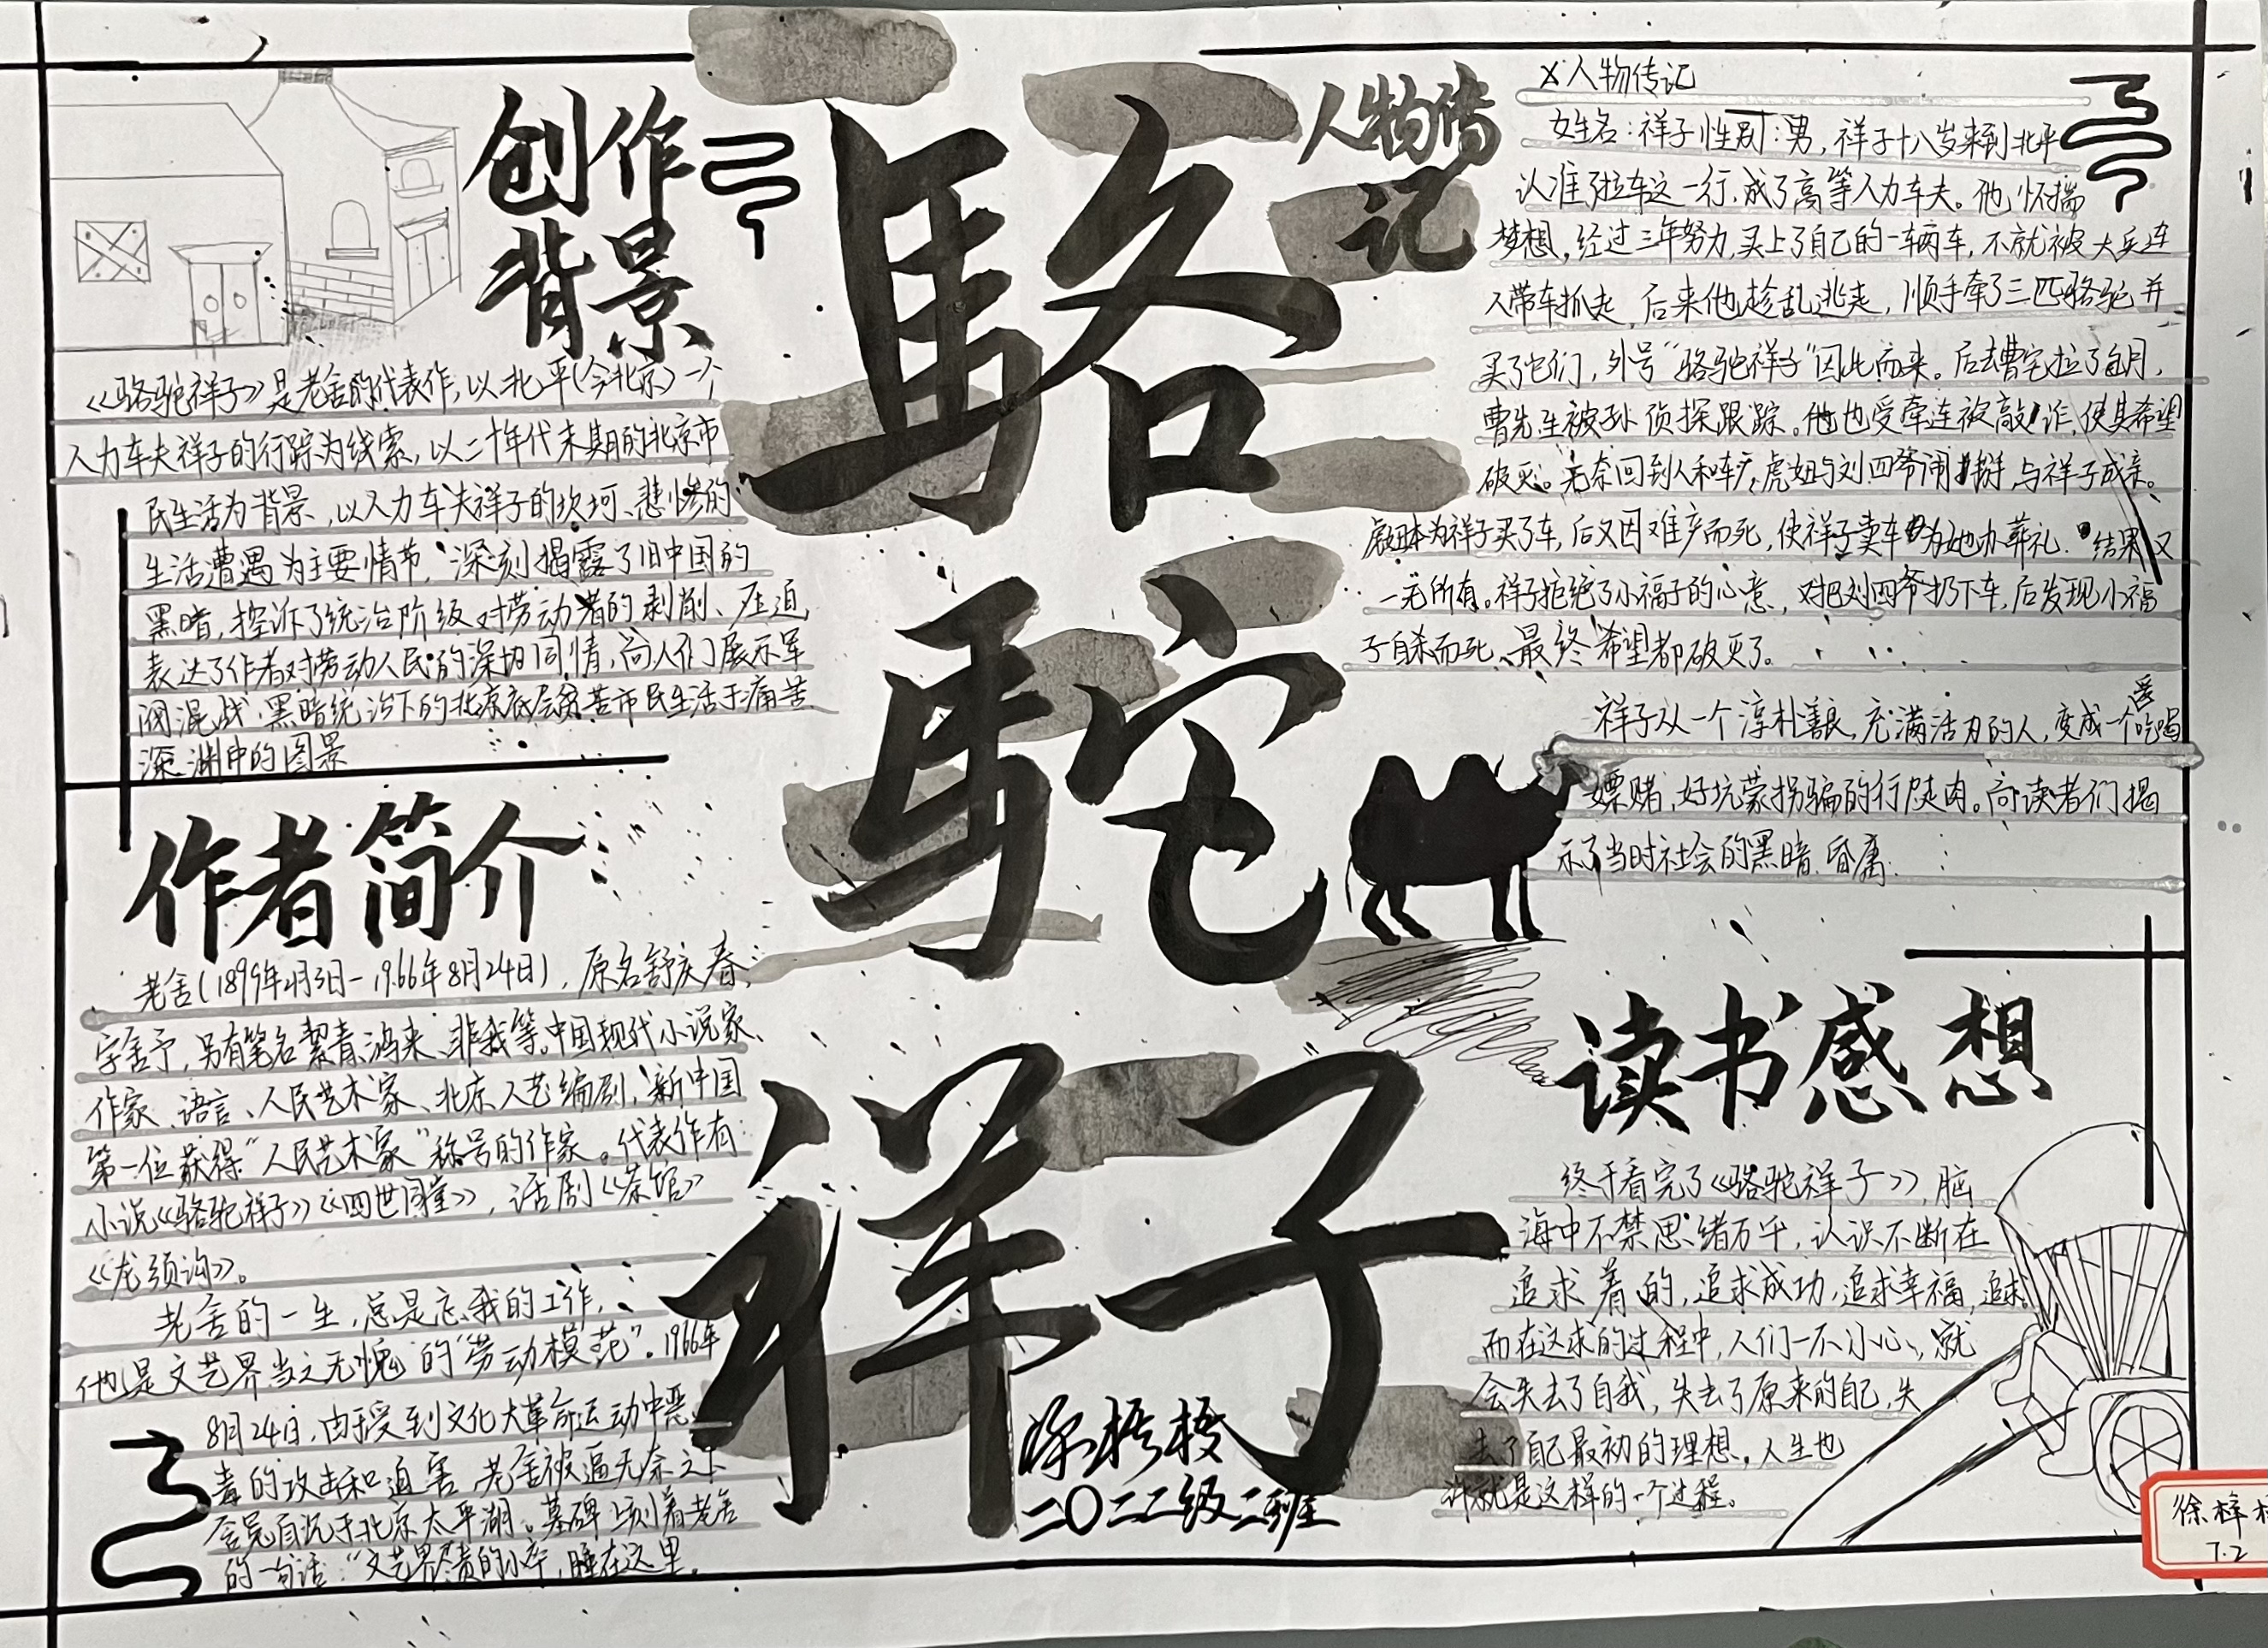 创作
背景
《骆驼祥子》是老舍的代表作,以北平(今北京)一个
人力车夫祥子的行踪为线索,以二十年代末期的北京市
民生活为背景,以人力车夫祥子的坎坷、悲惨的
生活遭遇为主要情节,深刻揭露了旧中国的
黑暗,控诉了统治阶级对劳动者的剥削、压迫
表达了作者对劳动人民的深切同情,向人们展示军
阀混战、黑暗统治下的北京底层贫苦市民生活于痛苦
深渊中的图景
作者简介
老舍(1899年2月3日-1966年8月24日),原名舒庆春,
字舍予,另有笔名絜青、鸿来、非我等。中国现代小说家、
作家、语言、人民艺术家、北京人艺编剧,新中国
第一位获得"人民艺术家"称号的作家。代表作有:
小说《骆驼祥子》《四世同堂》,话剧《茶馆》
《龙须沟》。
老舍的一生,总是忘我的工作,
他是文艺界当之无愧的"劳动模范"。1966年
8月24日,由于受到文化大革命运动中恶
毒的攻击和迫害,老舍被逼无奈之下
含冤自沉于北京太平湖。墓碑上刻着老舍
的一句话:"文艺界尽责的小卒,睡在这里。
駱
駝
祥子
二〇二二级二班
人物传
记
人物传记
姓名:祥子性别:男,祥子十八岁来到北平
认准了拉车这一行,成了高等人力车夫。他怀揣
梦想,经过三年努力,买上了自己的一辆车,不就被大兵连
人带车抓走,后来他趁乱逃走,顺手牵了三匹骆驼并
买了它们,外号"骆驼祥子"因此而来。后去曹宅拉了包月,
曹先生被孙侦探跟踪。他也受牵连被敲诈,使其希望
破灭。无奈回到人和车厂,虎妞与刘四爷闹掰,与祥子成亲。
虎妞本为祥子买了车,后又因难产而死,使祥子卖车为她办葬礼.结果又
一无所有。祥子拒绝了小福子的心意,对把刘四爷扔下车,后发现小福
子自杀而死、最终希望都破灭了。
祥子从一个淳朴善良,充满活力的人,变成一个爱吃喝
嫖赌,好坑蒙拐骗的行尸走肉。向读者们揭
示了当时社会的黑暗、昏庸.
读书感想
终于看完了《骆驼祥子》,脑
海中不禁思绪万千,认识不断在
追求着的,追求成功,追求幸福,追求
而在这求的过程中,人们一不小心,就
会失去了自我,失去了原来的自己,失
去了自己最初的理想。人生也
许就是这样的一个过程。
徐梓
7.2